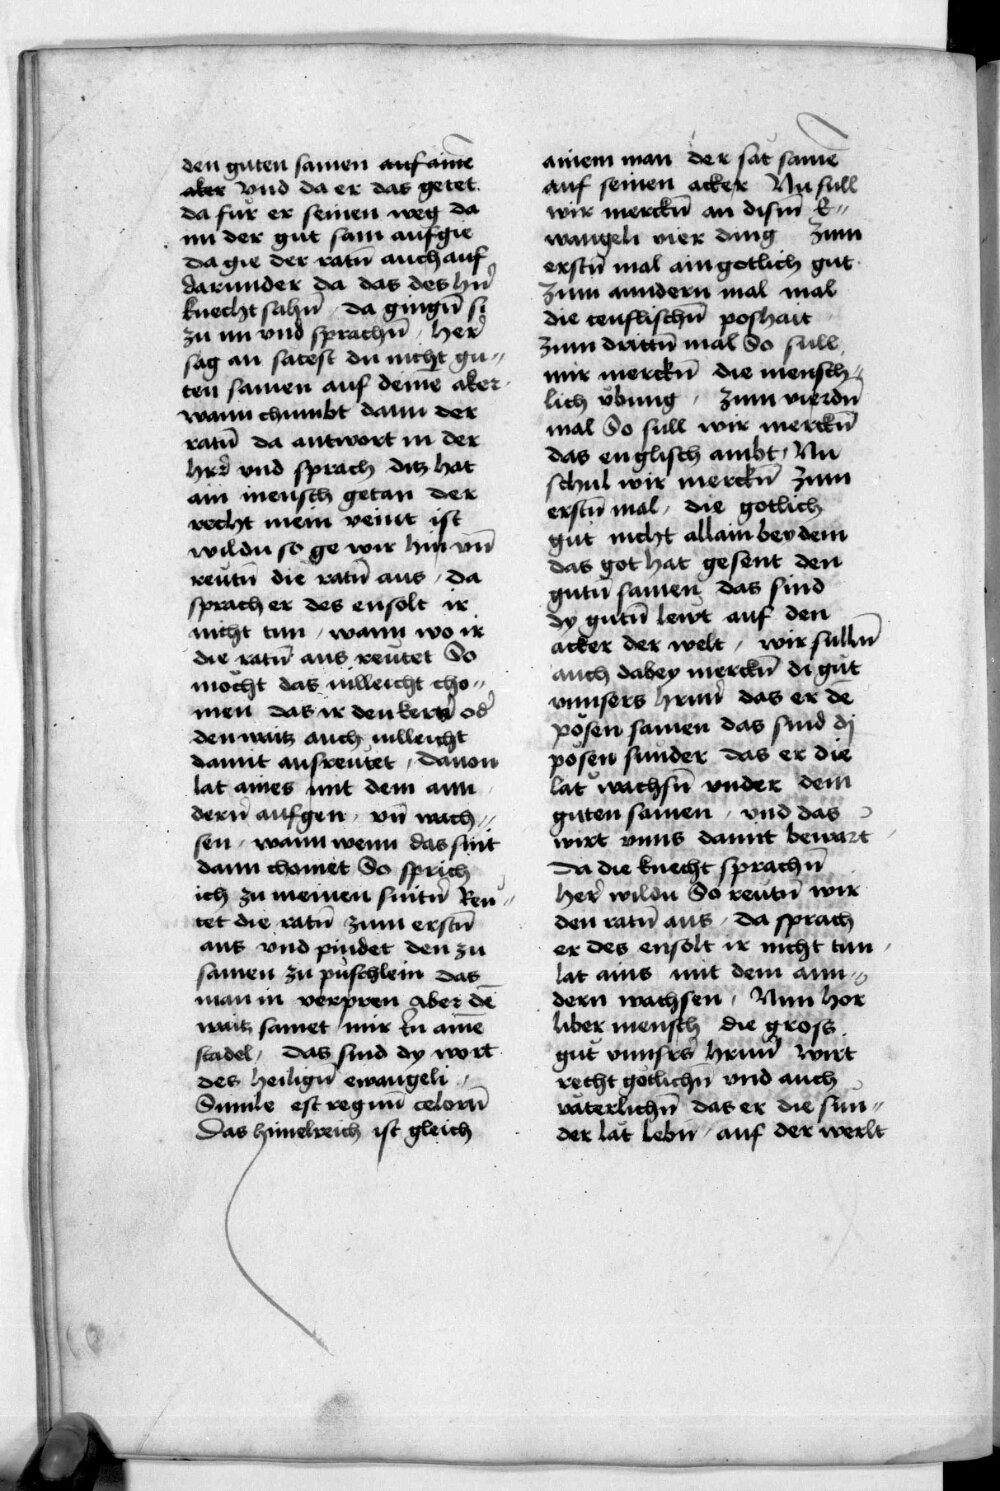 den guten samen auf aine̅
aker vnd da er das getet
da fur er seinen weg da
nu der gut sam aufgie
da gie der ratn̅ auch auf
darunder da das des hn̅
knecht sahn̅ / da gingn̅ si
zu im vnd sprachn̅ / her
sag an satest du nicht gu⸗
ten samen auf deine̅ aker
wann chumbt dann der
ratn̅ da antwort in der
her vnd sprach ditz hat
ain mensch getan der
recht mein veint ist
wildu so ge wir hin vn̅
reutn̅ die ratn̅ aus / da
sprach er des ensolt ir
nicht tun / wann wo ir
die ratn̅ aus reutet So
mocht das villeicht cho⸗
men das ir den kern od
den waitz auch villeicht
damit ausreutet / dauon
lat aines mit dem ann
dern aufgen / vn̅ wach⸗
sen / wann wenn das snit
dann chomet So sprich
ich zu meinen snitn̅ Reu⸗
tet die ratn̅ zum erstn̅
aus vnd pindet den zu
samen zu puschlein das
man in verpren aber de̅
waitz samet mir in aine̅
stadel / das sind dy wort
des heilign̅ ewangeli /
Simile est regnu̅ celoru̅
Das himelreich ist gleich
ainem man der sat same̅
auf seinen acker Nu sull
wir merckn̅ an dism̅ E⸗
wangeli vier ding zum
erstn̅ mal ain gotlich gut
zum anndern mal mal
die teuflischn̅ poshait
zum drittn̅ mal So sull
wir merckn̅ die mensch⸗
lich vbung / zum vierdn̅
mal So sull wir merckn̅
das englisch ambt / Nu
schul wir merckn̅ zum
erstn̅ mal / die gotlich
gut nicht allain bey dem
das got hat gesent den
gutn̅ samen das sind
dy gutn̅ lewt auf den
acker der welt / wir sulln̅
auch dabey merckn̅ di gut
vnnsers herrn das er de̅
posen samen das sind dy
posen sunder das er die
lat wachsn̅ vnder dem
guten samen / vnd das
wirt vnns damit bewart
Da die knecht sprachn̅
her wildu So reutn̅ wir
den ratn̅ aus / da sprach
er des ensolt ir nicht tun /
lat ains mit dem ann⸗
dern wachsen / Nun hor
liber mensch die gross
gut vnnsers herrn wirt
recht gotlichn̅ vnd auch
vaterlichn̅ das er die sun⸗
der lat lebn̅ / auf der werlt